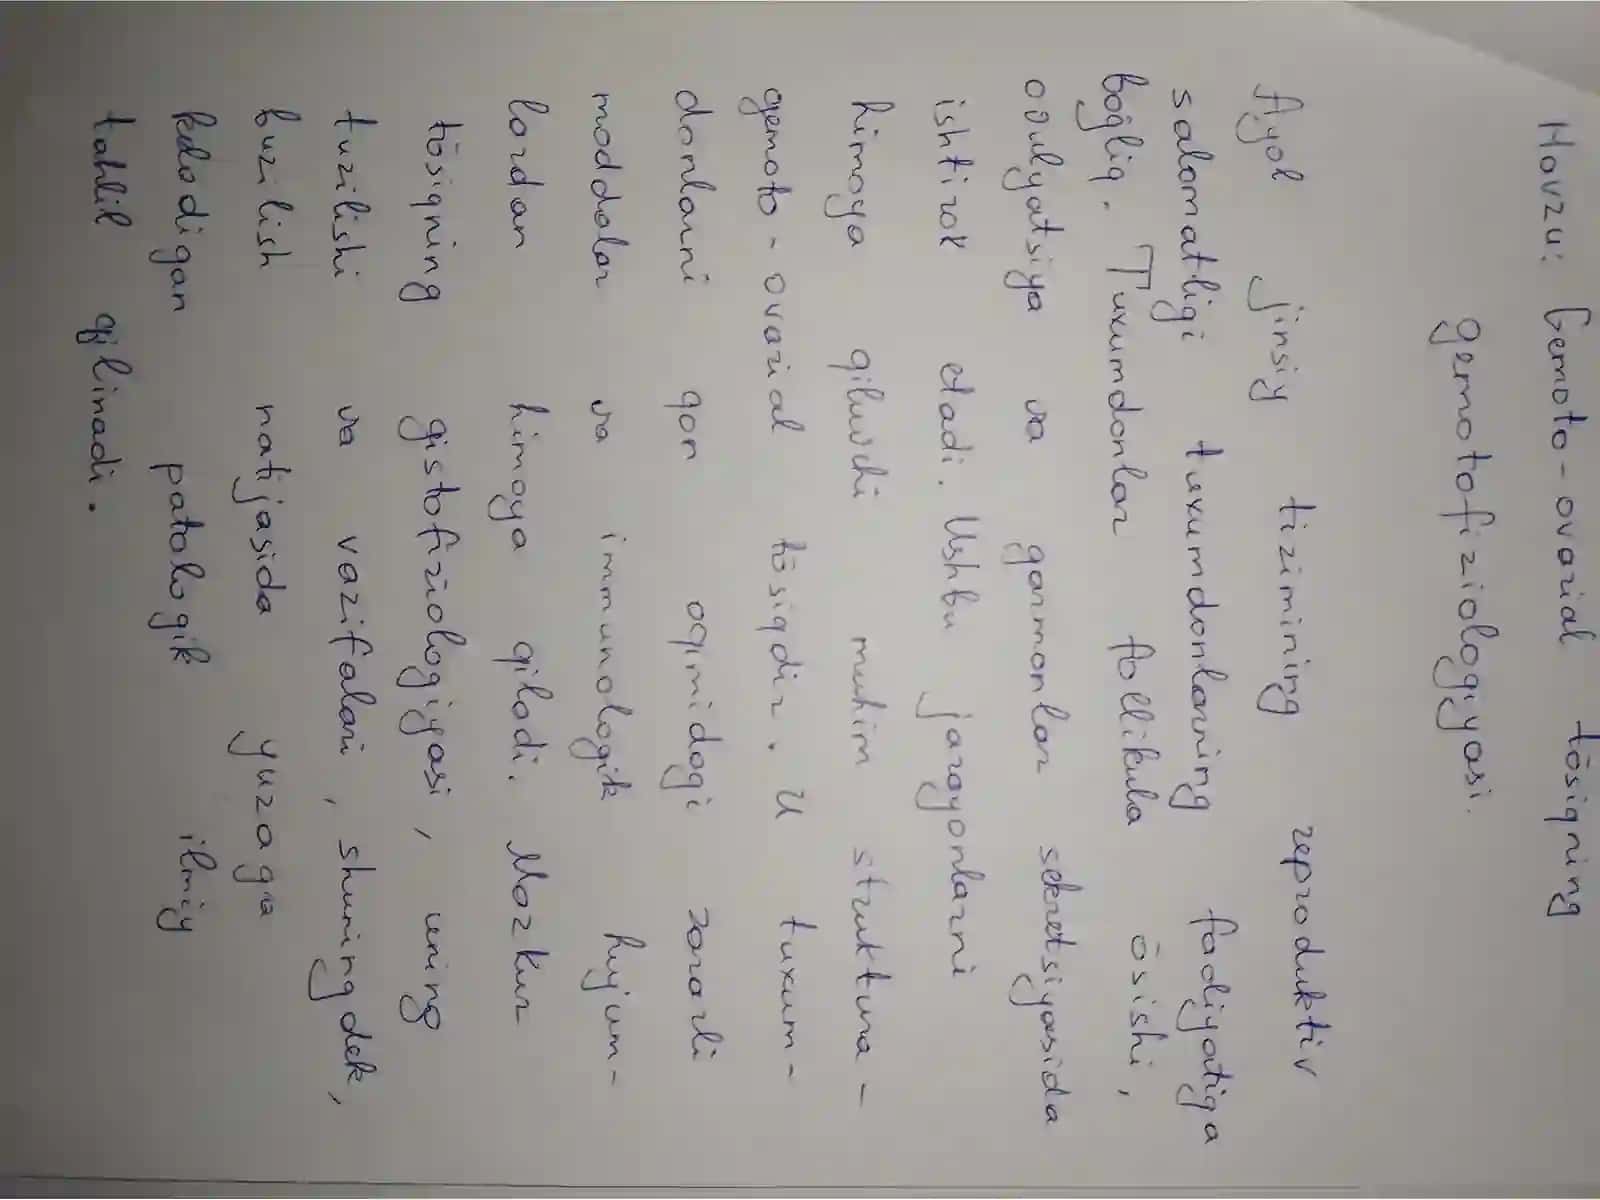 Mavzu: Gemoto-ovarial tōsiqning
gemotofiziologiyasi.
Ayol jinsiy tizimining reproduktiv
salomatligi tuxumdonlarning faoliyatiga
boğliq. Tuxumdonlar follikula ōsishi,
ovulyatsiya va garmonlar sekretsiyasida
ishtirok etadi. Ushbu jarayonlarni
himoya qiluvchi muhim struktura -
gemoto-ovarial tōsiqdir. U tuxum-
donlarni qon oqimidagi zararli
moddalar va immunologik hujum-
lardan himoya qiladi. Mazkur
tōsiqning gistofiziologiyasi, uning
tuzilishi va vazifalari, shuningdek,
buzilish natijasida yuzaga
keladigan patologik ilmiy
tahlil qilinadi.